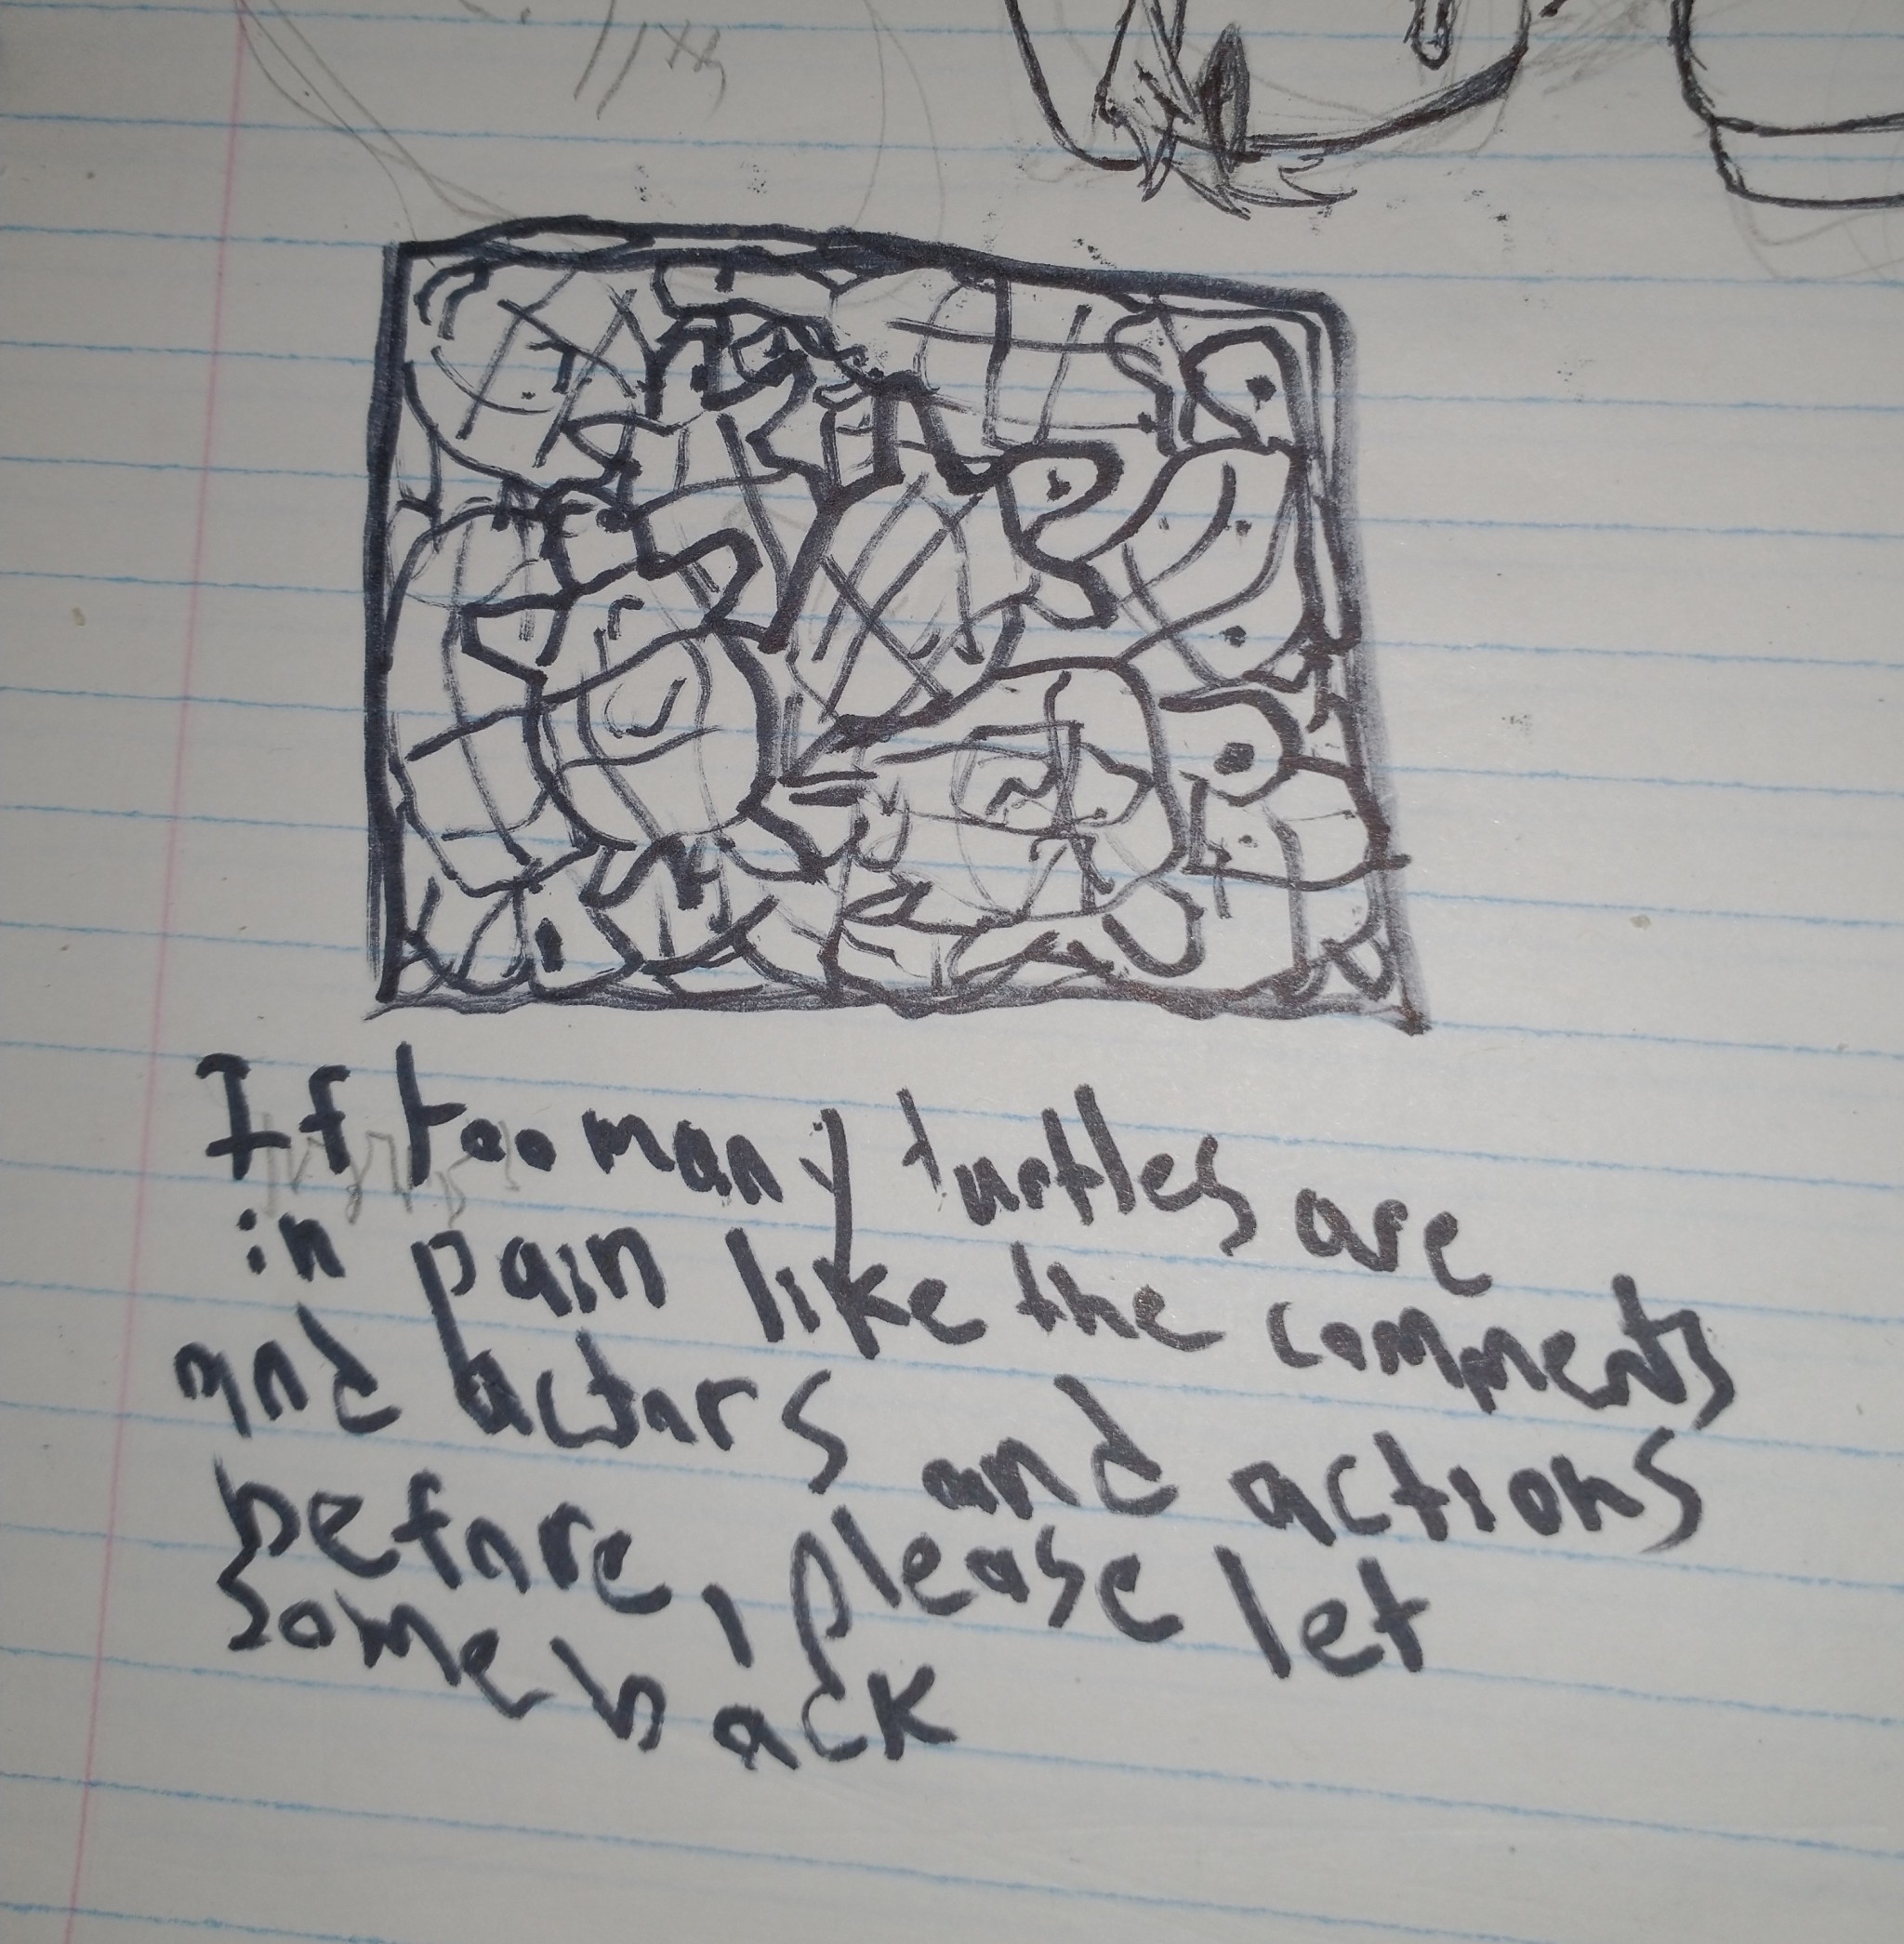 If too many turtles are
in pain like the comments
and actors and actions
before, please let
some back